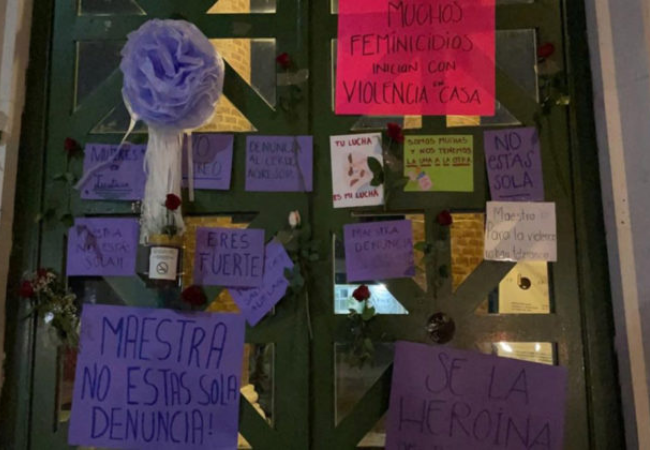 MUCHOS
FEMINICIDIOS
INICIAN CON
VIOLENCIA EN CASA
MUJERES
DENUNCIA
AL CERDO
AGRESOR
TU LUCHA
ES MI LUCHA
SOMOS MUCHAS
Y NOS TENEMOS
LA UNA A LA OTRA
NO
ESTÁS
SOLA
NO ESTAS
SOLA!!
ERES
FUERTE
MAESTRA
DENUNCIA
Maestra
Para la violencia
tolerancia
MAESTRA
NO ESTAS SOLA
DENUNCIA!
SE LA
HEROINA